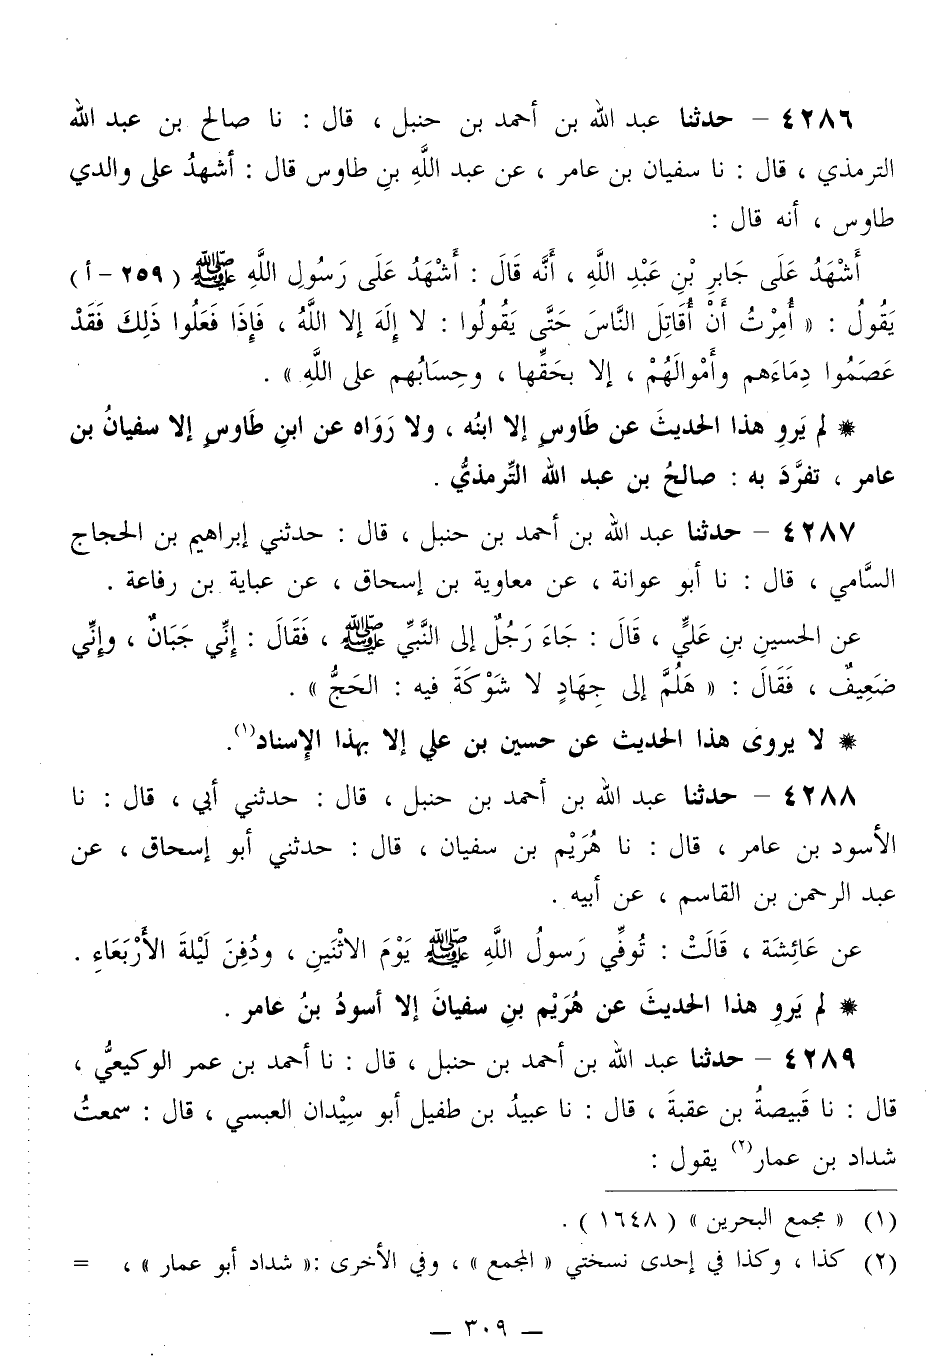 ٤٢٨٦ – حدثنا عبد الله بن أحمد بن حنبل ، قال : نا صالح بن عبد الله
الترمذي ، قال : نا سفيان بن عامر ، عن عبد اللَّهِ بنِ طاوس قال : أشهدُ على والدي
طاوس ، أنه قال :
أَشْهَدُ عَلَى جَابرِ بْنِ عَبْدِ اللَّهِ ، أَنَّه قَالَ : أَشْهَدُ عَلَى رَسُولِ اللَّهِ ﷺ ( ٢٥٩ – أ )
يَقُولُ : « أُمِرْتُ أَنْ أُقَاتِلَ النَّاسَ حَتَّى يَقُولُوا : لا إِلَهَ إلا اللَّهُ ، فَإِذَا فَعَلُوا ذَلِكَ فَقَدْ
عَصَمُوا دِمَاءَهم وأَمْوالَهُمْ ، إلا بحَقِّها ، وحِسَابُهم على اللَّهِ » .
* لم يَروِ هذا الحديثَ عن طَاوسٍ إلا ابنُه ، ولا رَوَاه عن ابنِ طَاوسٍ إلا سفيانُ بن
عامر ، تفرَّدَ به : صالحُ بن عبد الله التِّرمذيُّ .
٤٢٨٧ – حدثنا عبد الله بن أحمد بن حنبل ، قال : حدثني إبراهيم بن الحجاج
السَّامي ، قال : نا أبو عوانة ، عن معاوية بن إسحاق ، عن عباية بن رفاعة .
عن الحسينِ بنِ عَليٍّ ، قَالَ : جَاءَ رَجُلٌ إلى النَّبيِّ ﷺ ، فَقَالَ : إنِّي جَبَانٌ ، وإنِّي
ضَعِيفٌ ، فَقَالَ : « هَلُمَّ إلى جِهَادٍ لا شَوْكَةَ فيه : الحَجُّ » .
* لا يروى هذا الحديث عن حسين بن علي إلا بهذا الإسناد(١).
٤٢٨٨ – حدثنا عبد الله بن أحمد بن حنبل ، قال : حدثني أبي ، قال : نا
الأسود بن عامر ، قال : نا هُرَيْم بن سفيان ، قال : حدثني أبو إسحاق ، عن
عبد الرحمن بن القاسم ، عن أبيه .
عن عَائِشَة ، قَالَتْ : تُوفِّي رَسولُ اللَّهِ ﷺ يَوْمَ الاثْنَينِ ، ودُفِنَ لَيْلةَ الأَرْبَعَاءِ .
* لم يَروِ هذا الحديثَ عن هُرَيْم بنِ سفيانَ إلا أسودُ بنُ عامر .
٤٢٨٩ – حدثنا عبد الله بن أحمد بن حنبل ، قال : نا أحمد بن عمر الوكيعيُّ ،
قال : نا قَبيصةُ بن عقبةَ ، قال : نا عبيدُ بن طفيل أبو سِيْدان العبسي ، قال : سمعتُ
شداد بن عمار(٢) يقول :
(١) « مجمع البحرين » ( ١٦٤٨ ) .
(٢) كذا ، وكذا في إحدى نسختي « المجمع » ، وفي الأخرى :« شداد أبو عمار » ، =
— ٣٠٩ —